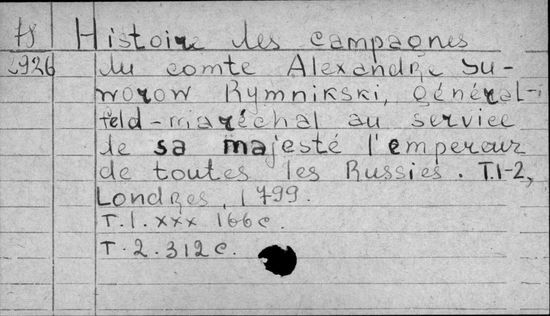 18 Histoire des campagnes
2926 du comte Alexandre Su-
worow Rymnikski, général-
feld-maréchal au service
de sa majesté l'empereur
de toutes les Russies. T.1-2,
Londres, 1799.
T.1. xxx 166 c.
T.2. 312 c.